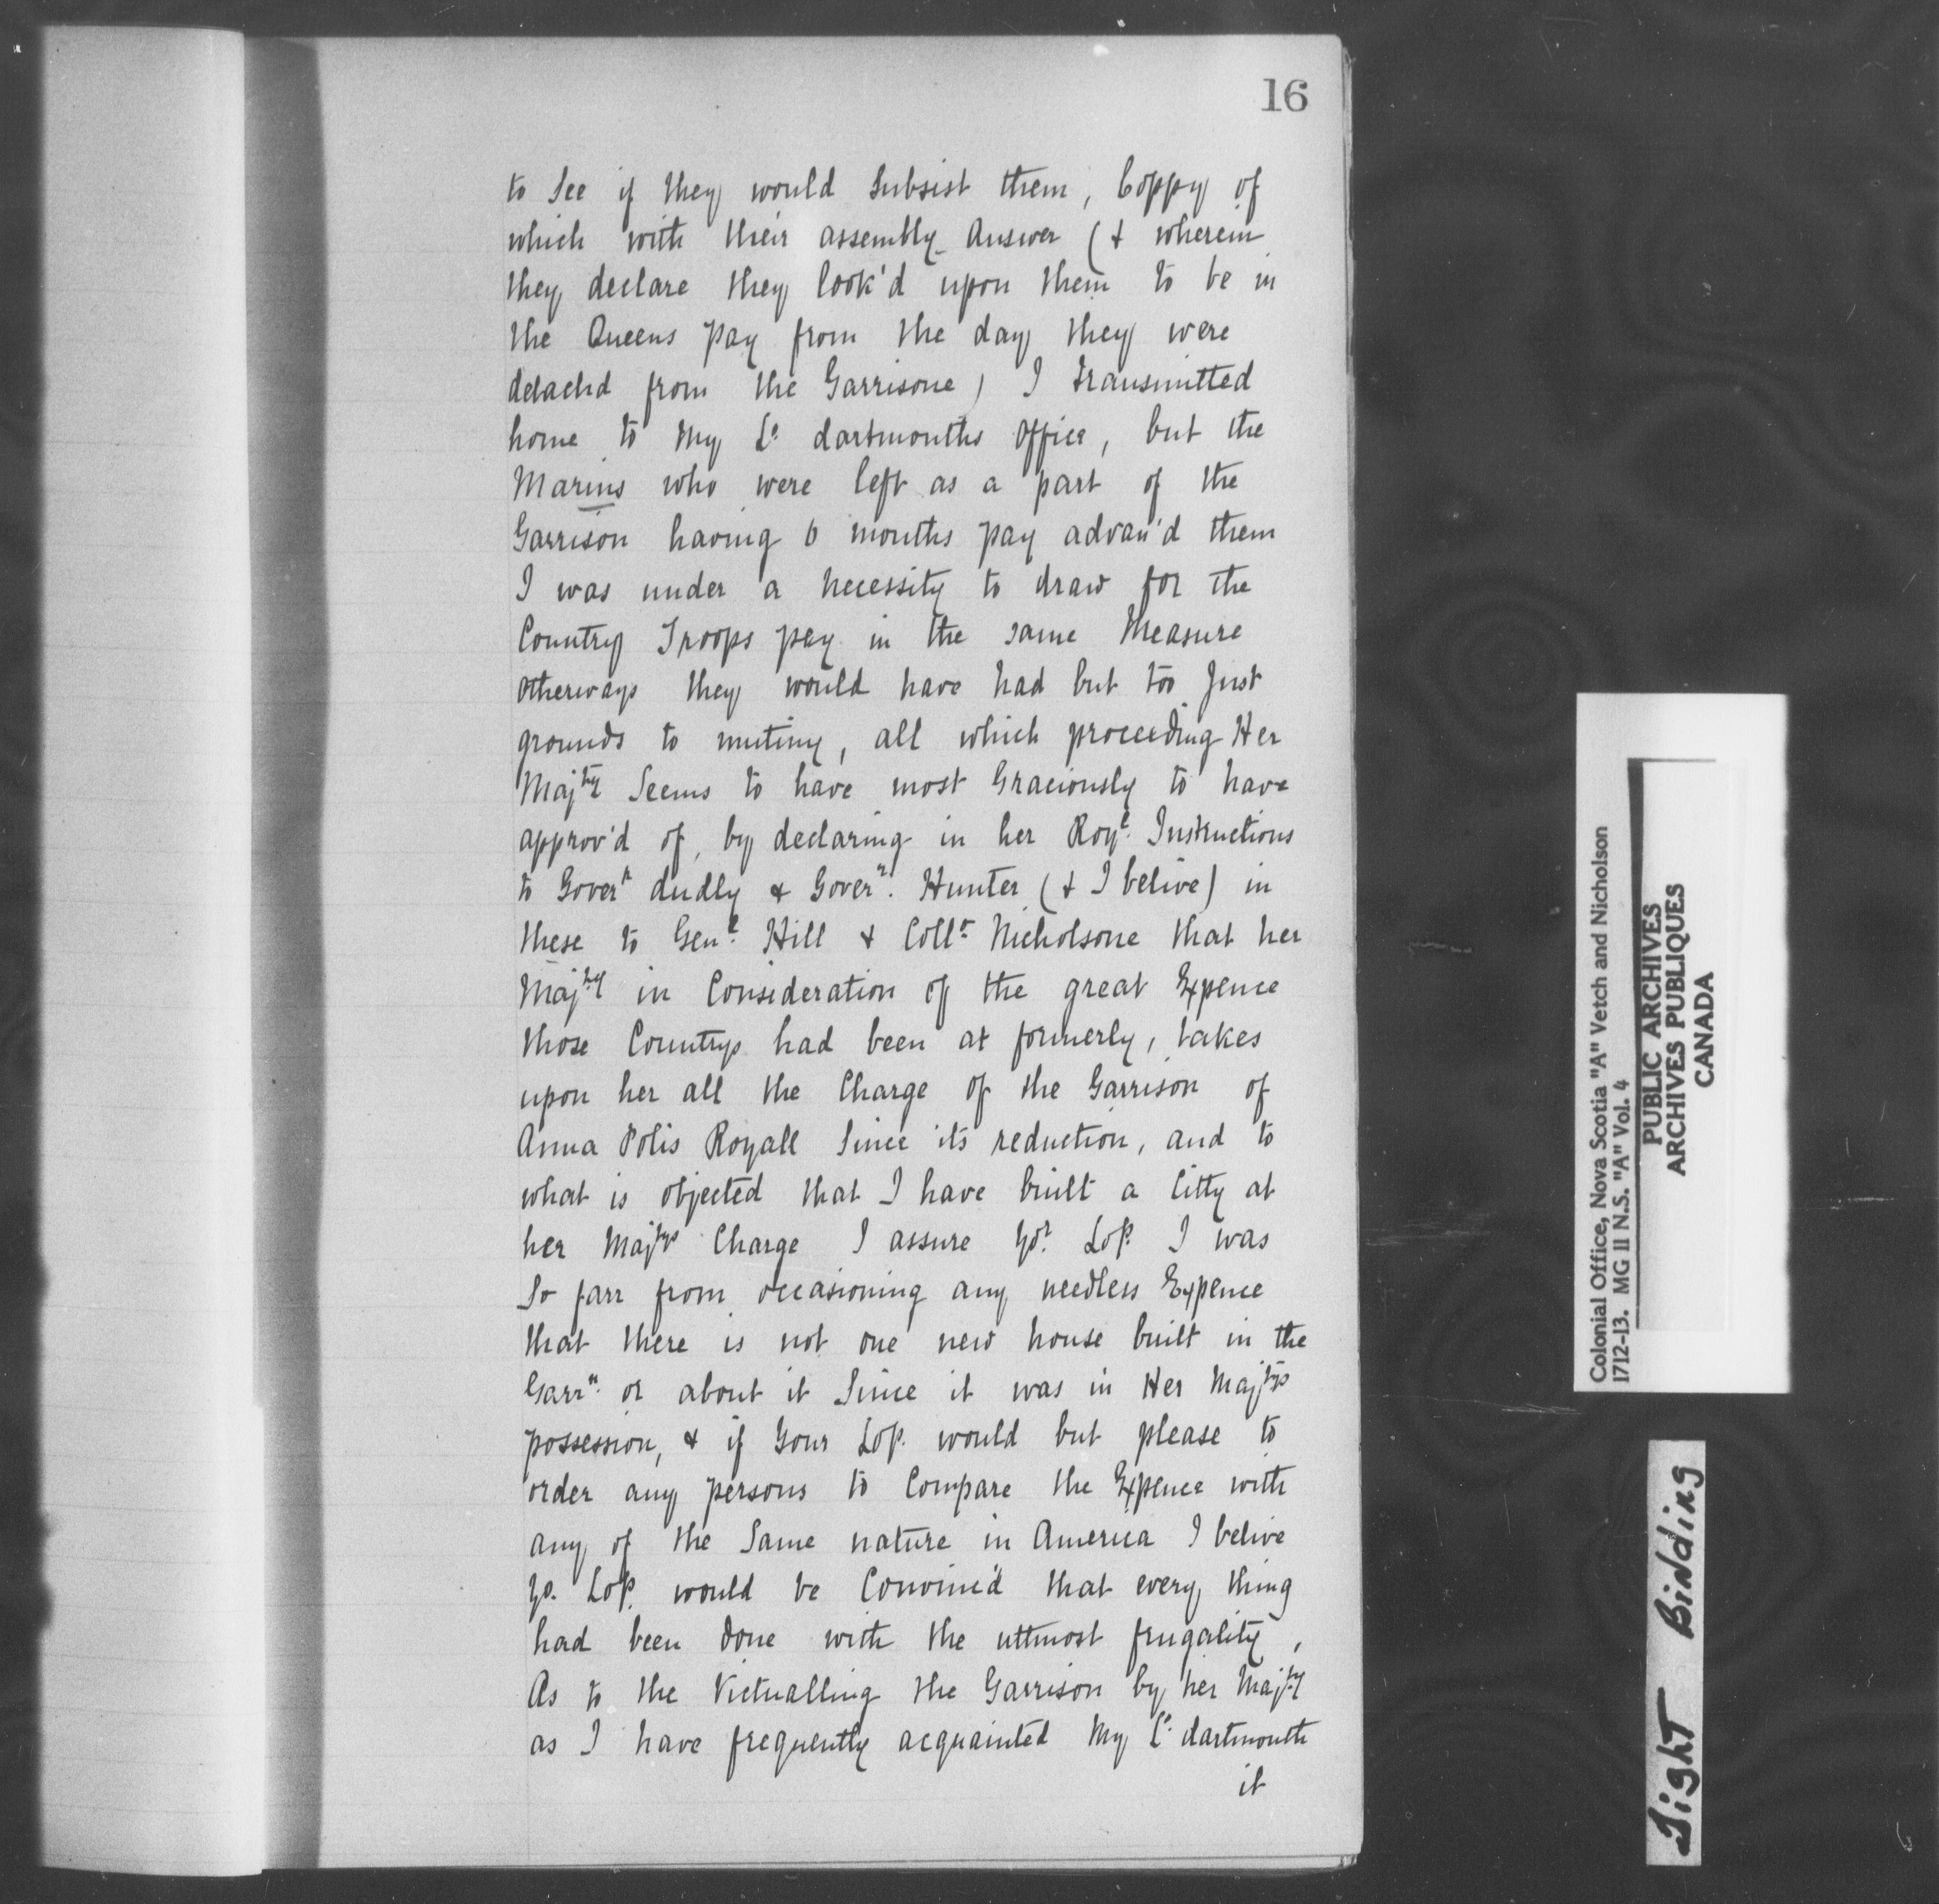 16
to See if they would Subsist them, Coppy of
which with their assembly Answer (& wherein
they declare they look'd upon them to be in
the Queens pay from the day they were
detachd from the Garrisone) I transmitted
home to My Ld. dartmouths Office, but the
Marins who were left as a part of the
Garrison having 6 months pay advan'd them
I was under a necessity to draw for the
Country Troops pay in the same Measure
otherways they would have had but too Just
grounds to mutiny, all which proceeding Her
Majty Seems to have most Graciously to have
approv'd of, by declaring in her Royl. Instructions
to Goverr dudly & Goverr. Hunter (& I belive) in
these to Genl. Hill & Collr. Nicholsone that her
Majty in Consideration of the great Expence
those Countrys had been at formerly, takes
upon her all the Charge of the Garrison of
Anna Polis Royall Since its reduction, and to
what is objected that I have built a Citty at
her Majtys Charge I assure yor. Lop. I was
So farr from occasioning any needless Expence
that there is not one new house built in the
Garrn. or about it Since it was in Her Majtys
possession, & if Your Lop. would but please to
order any persons to Compare the Expence with
any of the Same nature in America I belive
yo. Lop. would be Convinc'd that every thing
had been done with the uttmost frugality,
As to the Victualling the Garrison by her Majty
as I have frequently acquainted My Ld. dartmouth
it
Colonial Office, Nova Scotia "A" Vetch and Nicholson
1712-13. MG 11 N.S. "A" Vol. 4
PUBLIC ARCHIVES
ARCHIVES PUBLIQUES
CANADA
Tight Binding